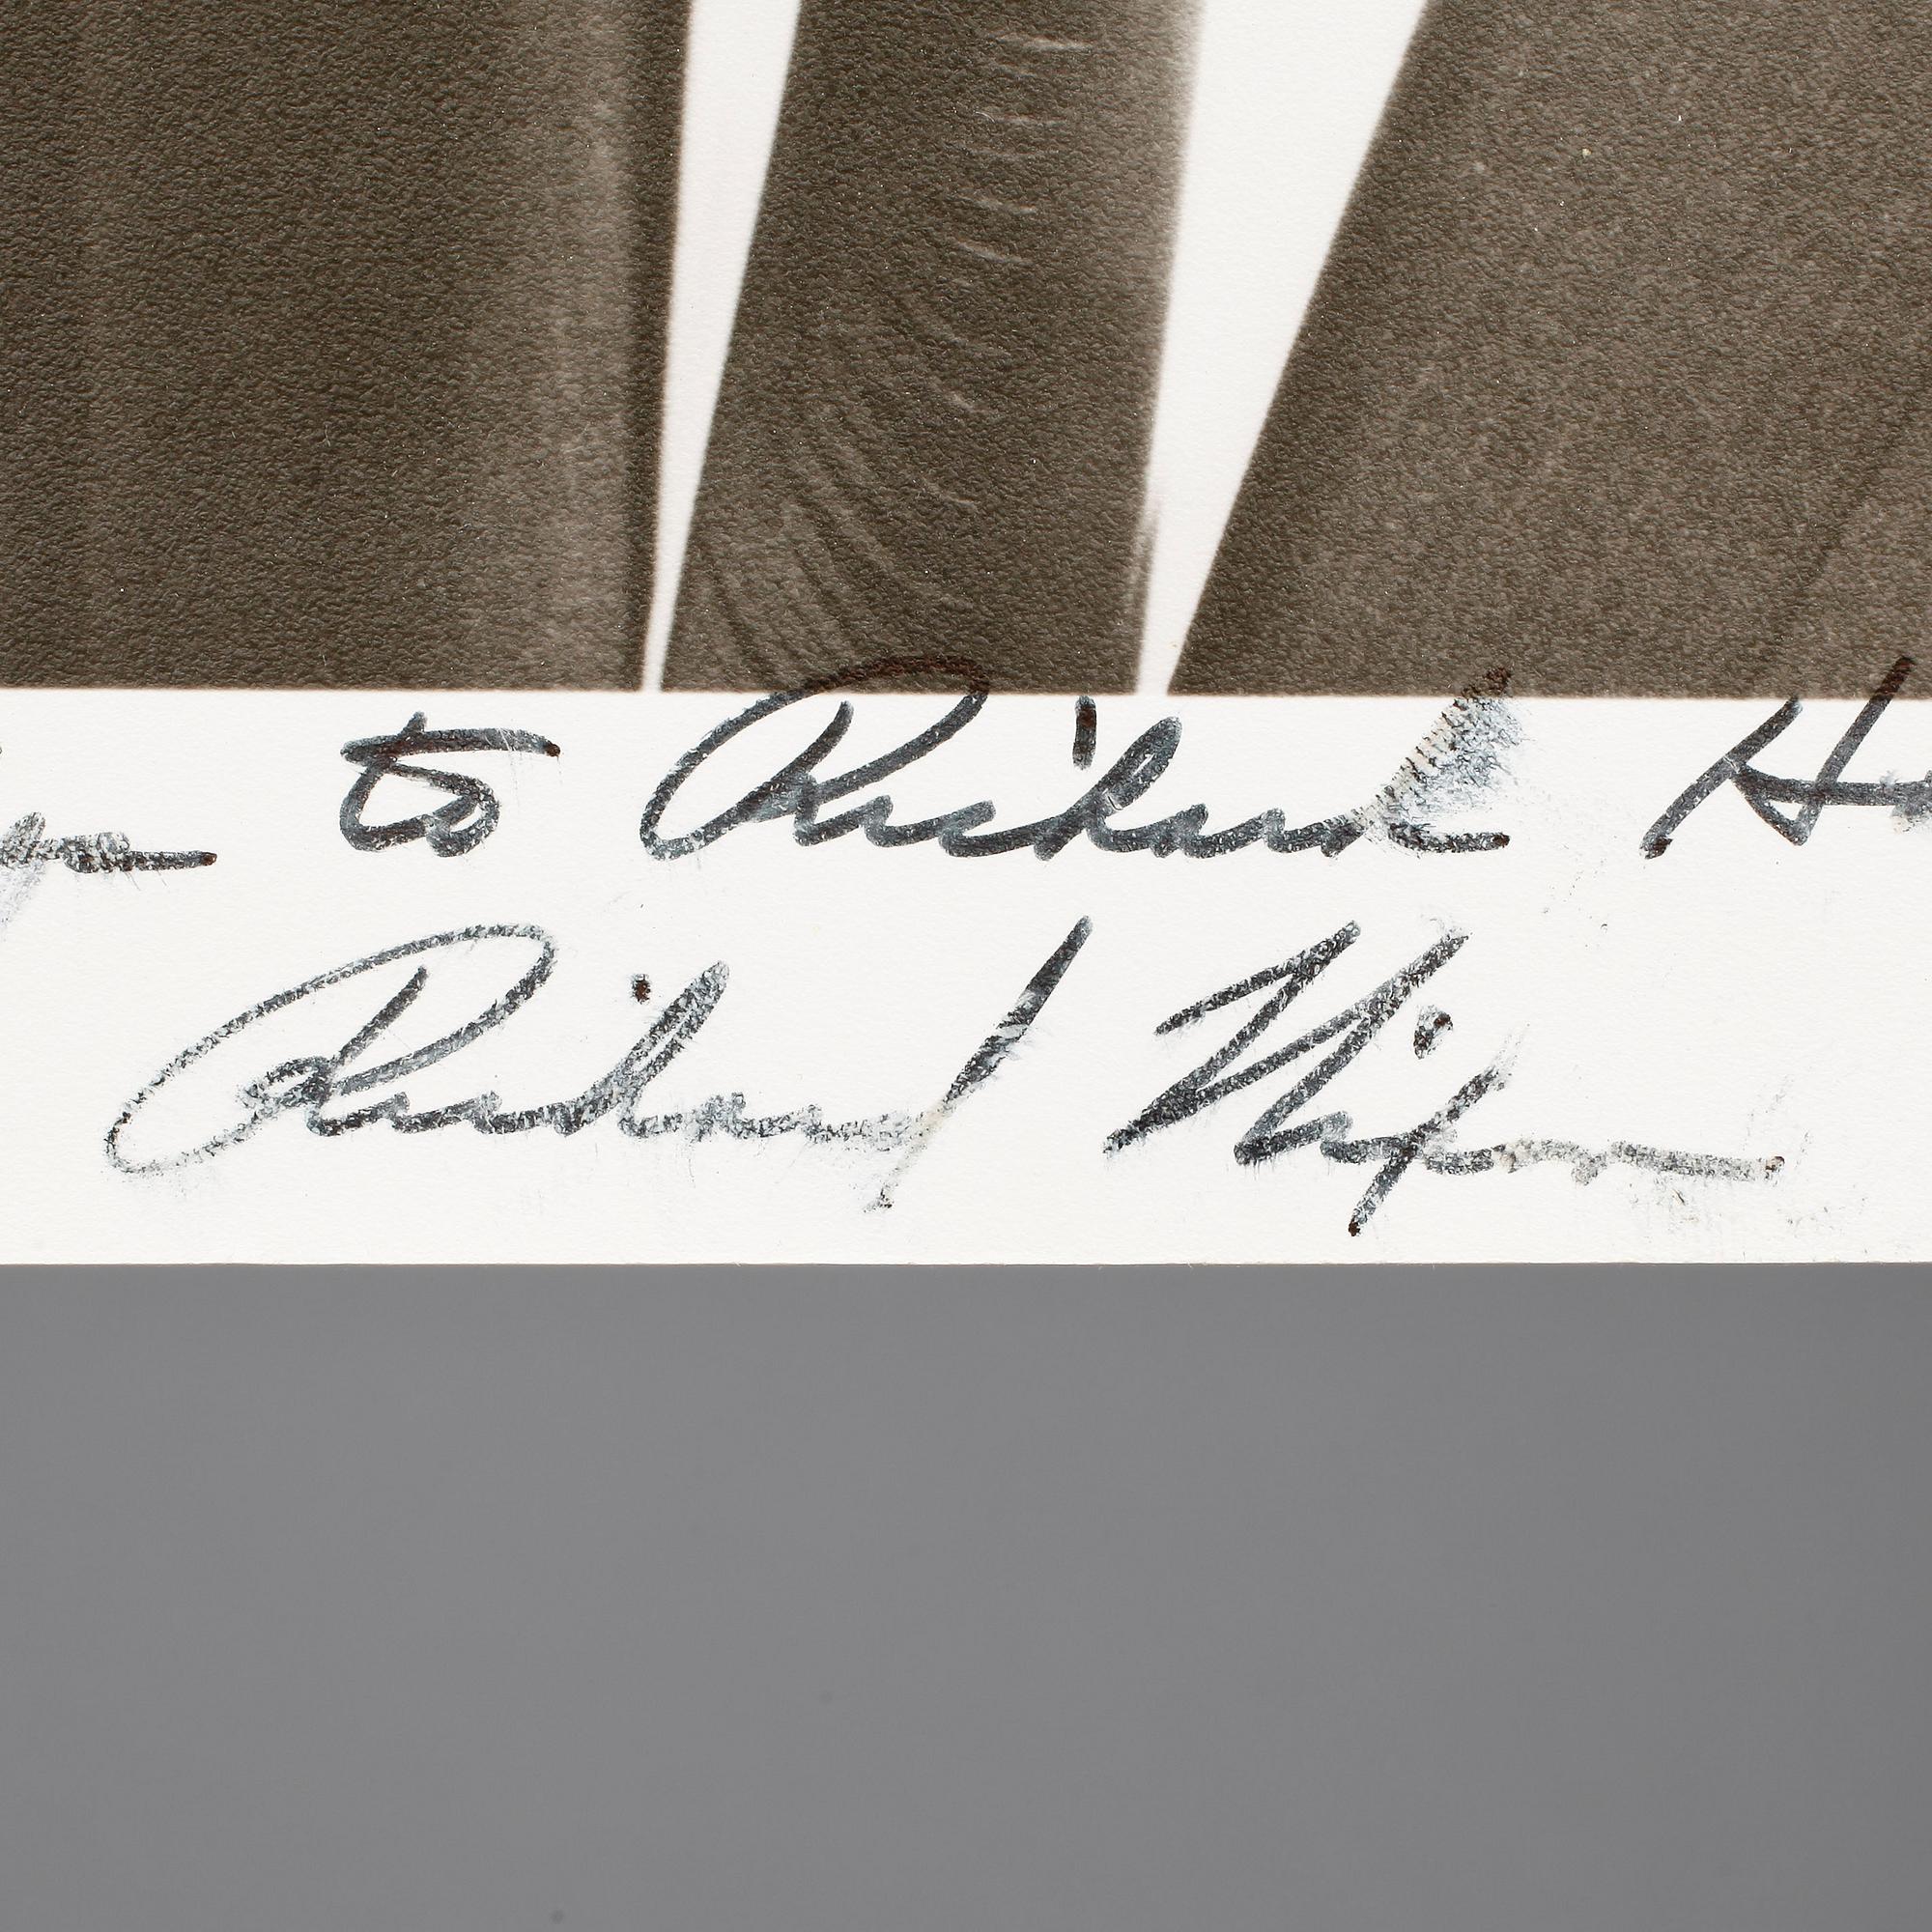 to Richard
Richard Nixon